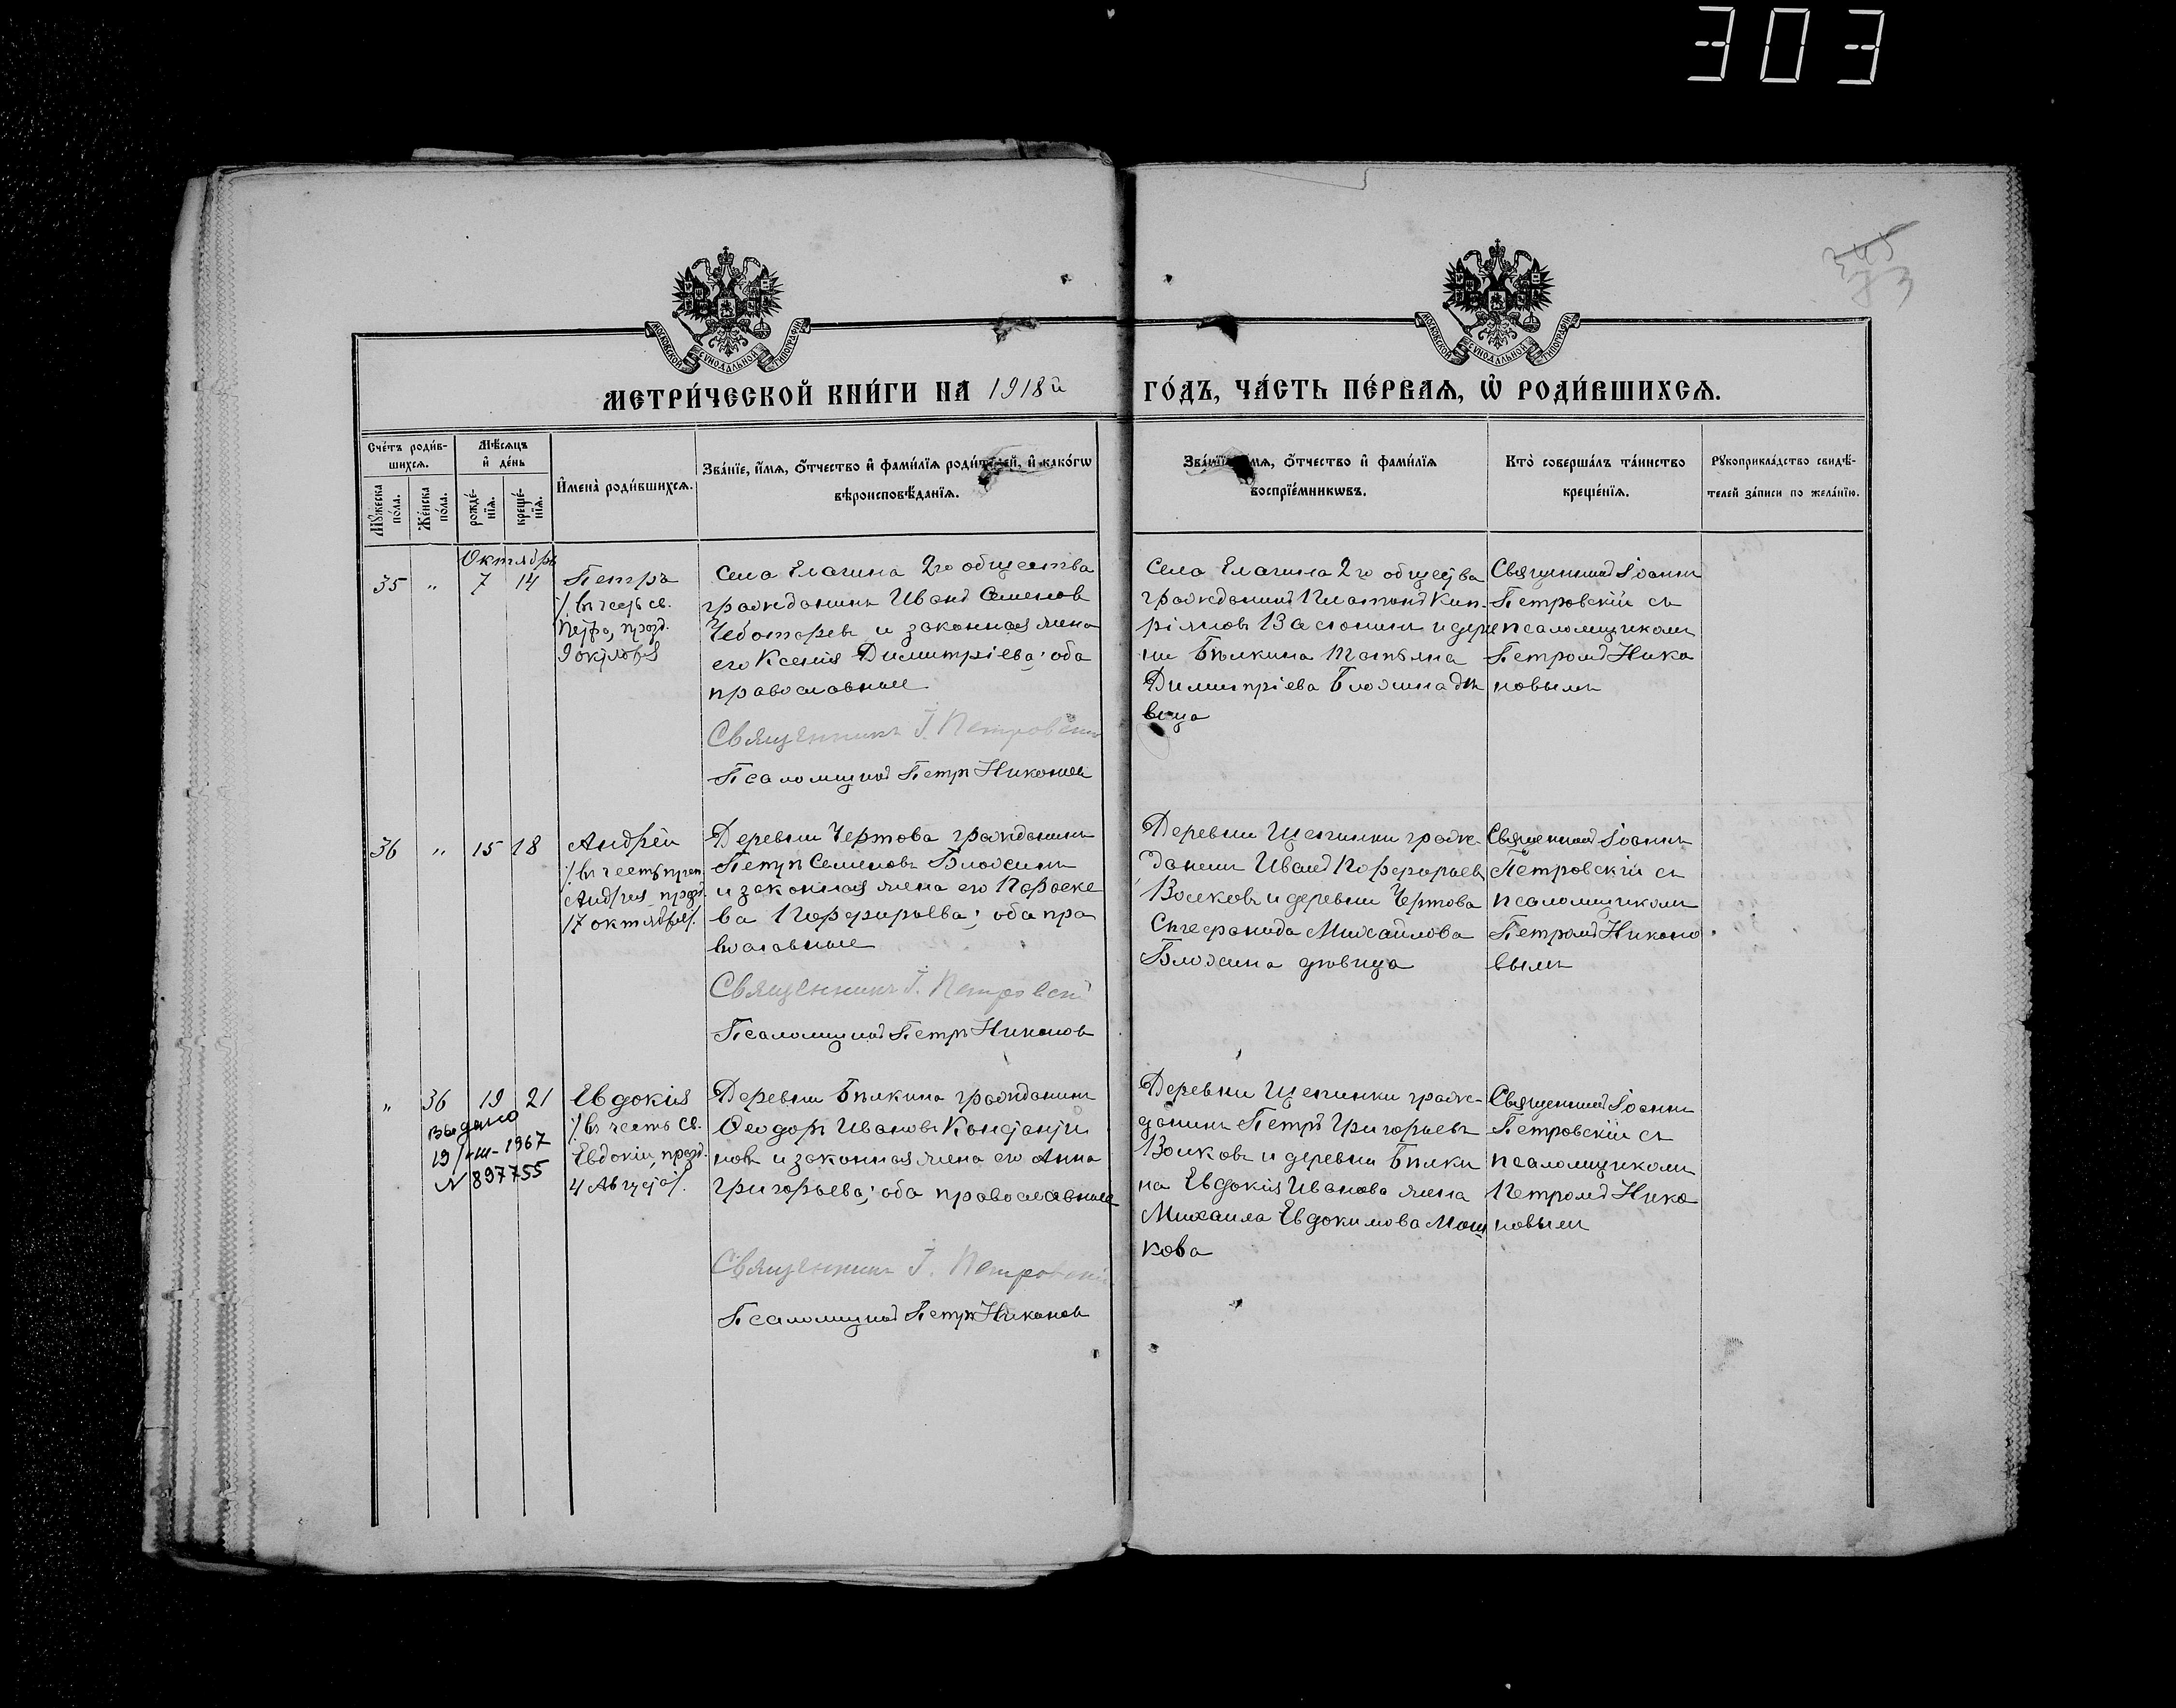 303
МОСКОВСКОЙ СѴНОДАЛЬНОЙ ТИПОГРАФІИ
МОСКОВСКОЙ СѴНОДАЛЬНОЙ ТИПОГРАФІИ
МЕТРИ́ЧЕСКОЙ КНИ́ГИ НА 1918й ГО́ДЪ, ЧА́СТЬ ПЕ́РВАѦ, Ѡ҆ РОДИ́ВШИХСѦ.
Сче́тъ роди́в-
шихсѧ.
Мꙋ́жеска по́ла.
Же́нска по́ла.
Мѣ́сѧцъ
и҆ де́нь
рожде́-
нїѧ.
креще́-
нїѧ.
И҆мена̀ роди́вшихсѧ.
Зва́нїе, и҆́мѧ, ѻ҆́тчество и҆ фами́лїѧ роди́телей, и҆ како́гѡ
вѣроисповѣ́данїѧ.
Зва́нїе, и҆́мѧ, ѻ҆́тчество и҆ фами́лїѧ
воспрїе́мникѡвъ.
Кто̀ соверша́лъ та́инство
креще́нїѧ.
Рꙋкоприкла́дство свидѣ́-
телей за́писи по жела́нїю.
Октябрь
35 " 7 14
Петръ
/въ честь св.
Петра, празд.
9 октября
Села Елагина 2го общества
гражданинъ Иванъ Семенов
Чеботаревъ и законная жена
его Ксенія Димитріева; оба
православные
Священникъ І. Петровскій
Псаломщикъ Петръ Никоновъ
Села Елагина 2го общества
гражданинъ Платонъ Кип-
ріяновъ и дерев
ни Бѣлкина Татьяна
Димитріева Блохина дѣ
вица
Священникъ Іоаннъ
Петровскій съ
псаломщикомъ
Петромъ Нико
новымъ
36 " 15 18
Андрей
/въ честь преп.
Андрея, празд.
17 октября/.
Деревни Чертова гражданинъ
Петръ Семеновъ Блохинъ
и законная жена его Параске
ва Порфирьева; оба пра
вославные
Священникъ І. Петровскій
Псаломщикъ Петръ Никоновъ
Деревни Щепинки граж-
данинъ Иванъ Порфирьевъ
Волковъ и деревни Чертова
Стефанида Михайлова
Блохина дѣвица
Священникъ Іоаннъ
Петровскій съ
псаломщикомъ
Петромъ Никоно
вымъ
" 36 19 21
Выдано
19/III-1967
N 897755
Евдокія
/въ честь св.
Евдокіи, празд.
4 Августа/.
Деревни Бѣлкина гражданинъ
Ѳеодоръ Ивановъ Константи
новъ и законная жена его Анна
Григорьева; оба православные
Священникъ І. Петровскій
Псаломщикъ Петръ Никоновъ
Деревни Щепинки граж-
данинъ Петръ Григорьевъ
Волковъ и деревни Бѣлки
на Евдокія Иванова жена
Михаила Евдокимова Мош
кова
Священникъ Іоаннъ
Петровскій съ
псаломщикомъ
Петромъ Нико
новымъ